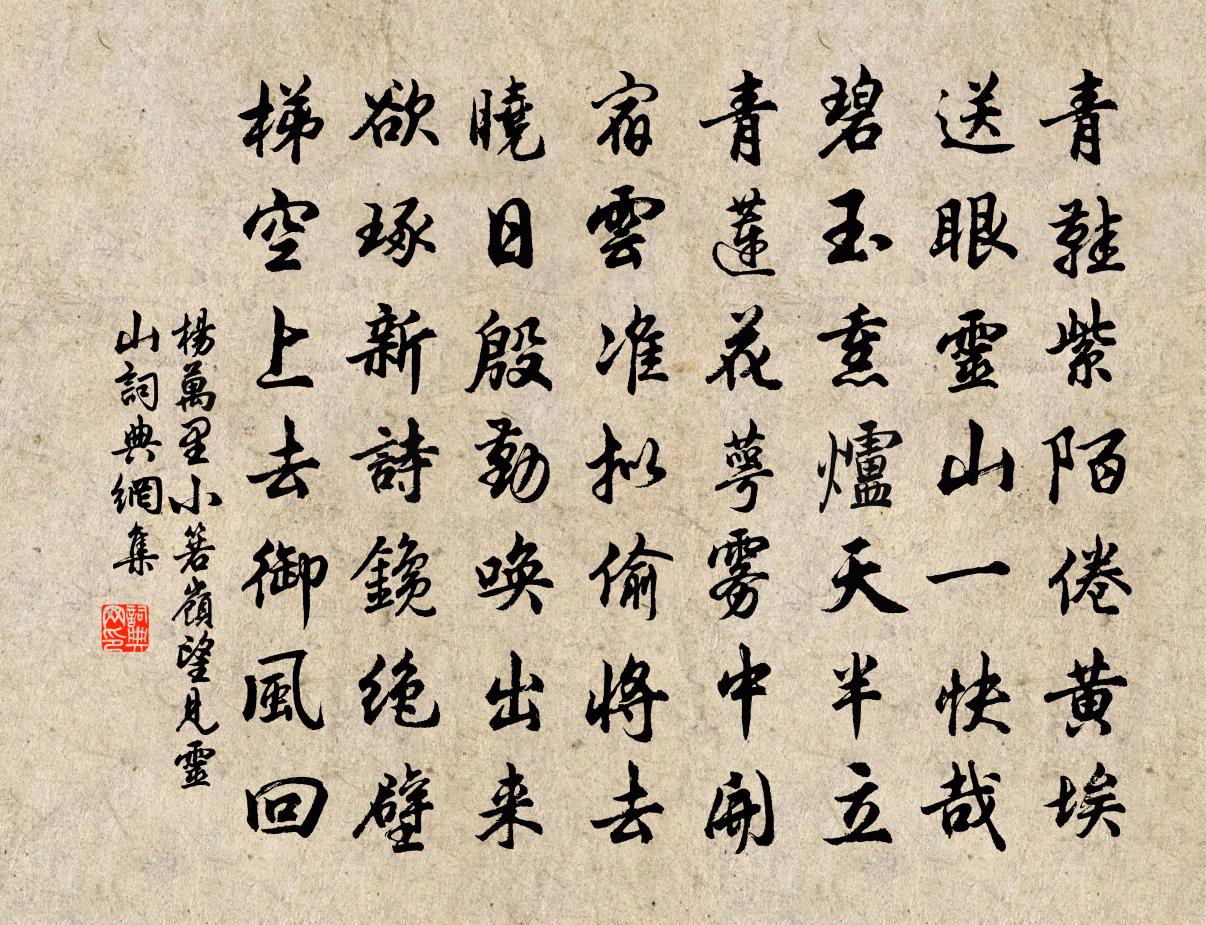 青鞋紫陌倦黃埃
送眼靈山一快哉
碧玉熏爐天半立
青蓮花萼霧中開
宿雲准拟偷將去
曉日殷勤喚出来
欲琢新詩鑱絶壁
梯空上去御風回
楊萬里小箬嶺望見靈
山詞典網集
詞典
网印